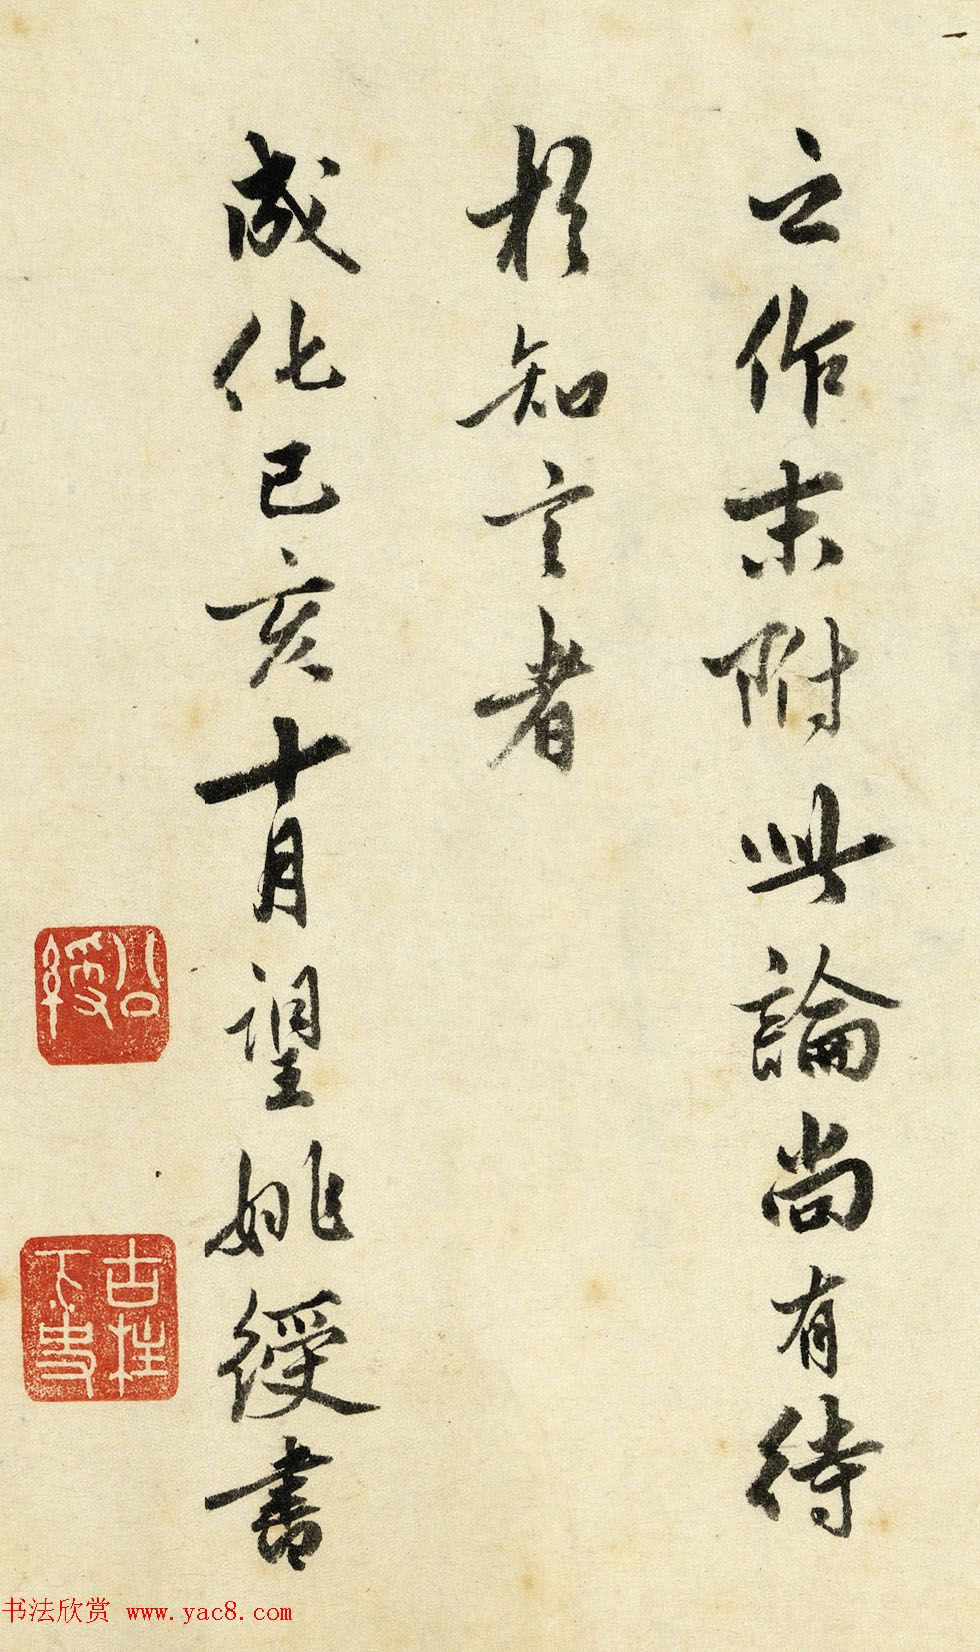 之作末附此論尚有待
於知言者
成化己亥十月望姚綬書
公綬
古柱下史
书法欣赏 www.yac8.com